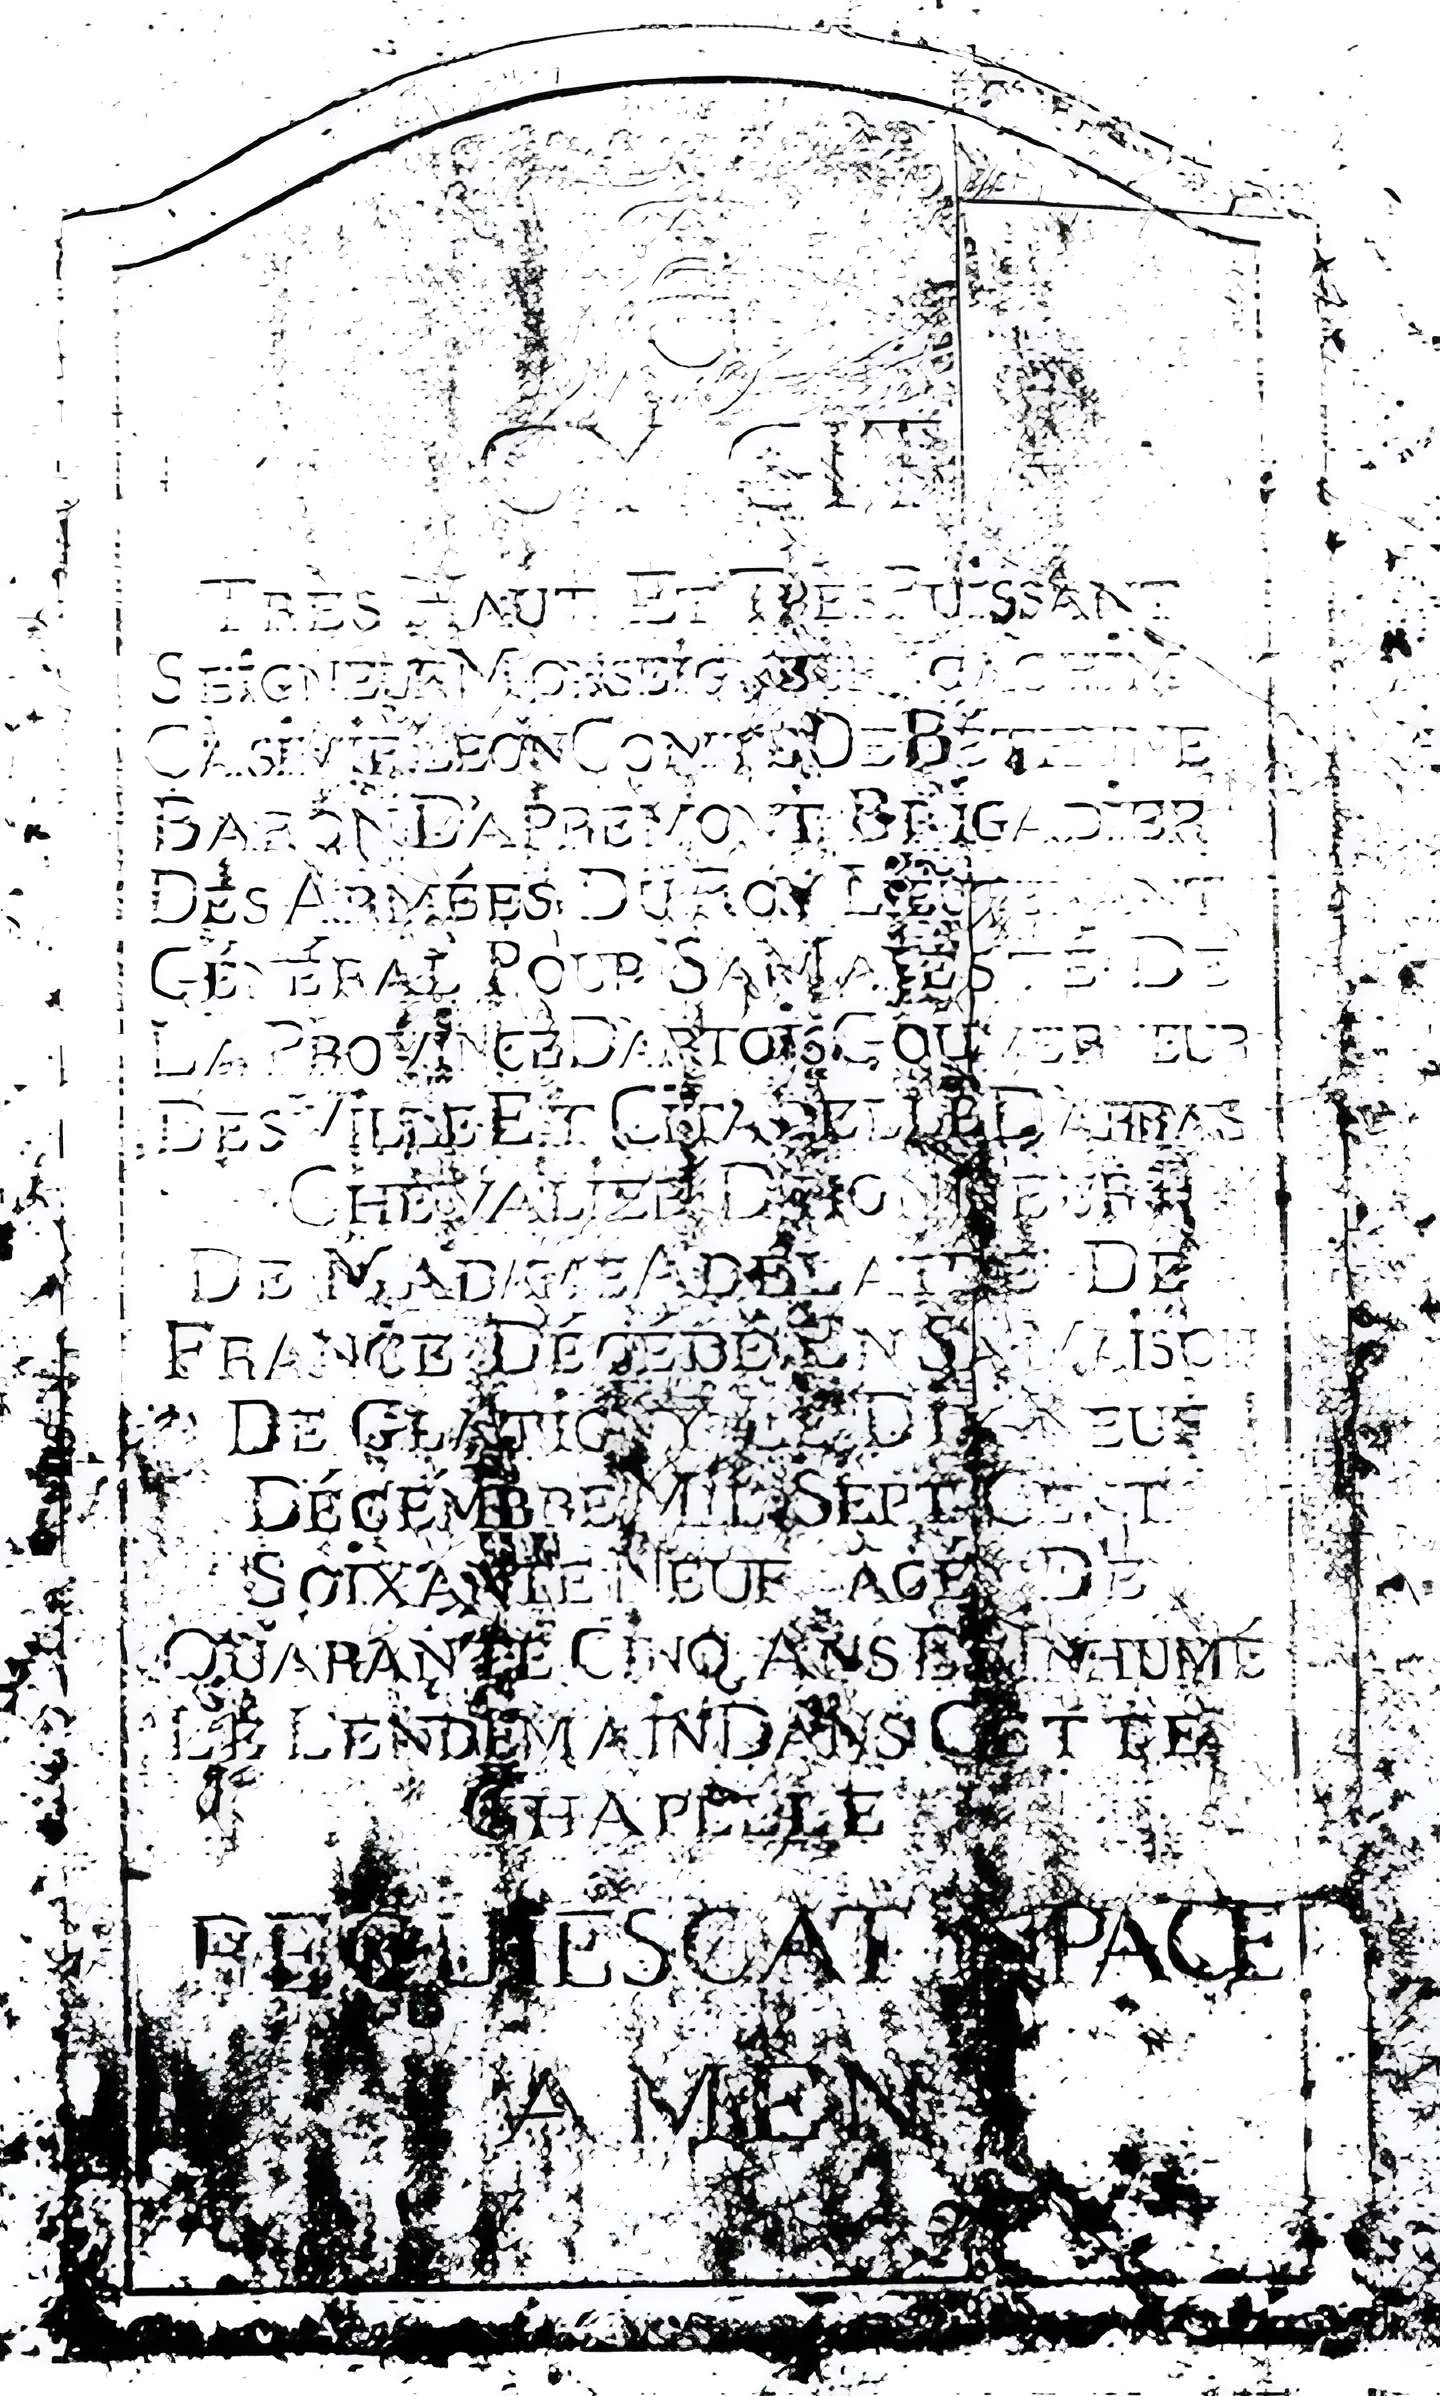 CY GIT
TRÈS HAUT ET TRES PUISSANT
SEIGNEUR MONSEIGNEUR JOACHIM
CASIMIR LEON COMTE DE BÉTHUNE
BARON D'APREMONT BRIGADIER
DES ARMÉES DU ROY LIEUTENANT
GÉNÉRAL POUR SA MAJESTÉ DE
LA PROVINCE D'ARTOIS GOUVERNEUR
DES VILLE ET CITADELLE D'ARRAS
CHEVALIER D'HONNEUR
DE MADAME ADELAIDE DE
FRANCE DÉCÉDÉ EN SA MAISON
DE GLATIGNY LE DIX NEUF
DÉCEMBRE MIL SEPT CENT
SOIXANTE NEUF AGÉ DE
QUARANTE CINQ ANS ET INHUMÉ
LE LENDEMAIN DANS CETTE
CHAPELLE
REQUIESCAT IN PACE
AMEN